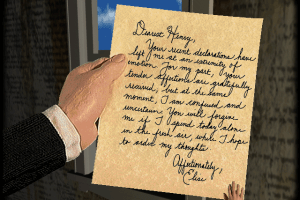 Dearest Henry,
Your recent declarations have
left me at an extremity of
emotion. For my part, your
tender affections are gratefully
received, but at the same
moment, I am confused and
uncertain. You will forgive
me if I spend today alone
in the fresh air, while I hope
to order my thoughts.
Affectionately,
Elise